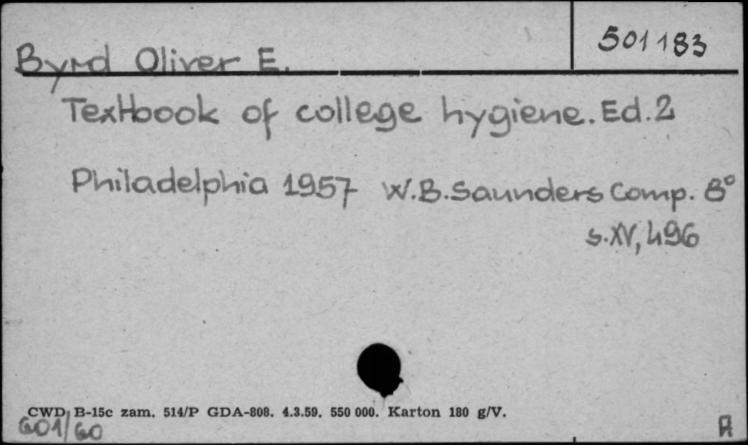 501183
Byrd Oliver E.
Textbook of college hygiene. Ed. 2
Philadelphia 1957 W.B. Saunders Comp. 8°
s. XV, 496
CWD, B-15c zam. 514/P GDA-808. 4.3.59. 550 000. Karton 180 g/V.
601/60
A